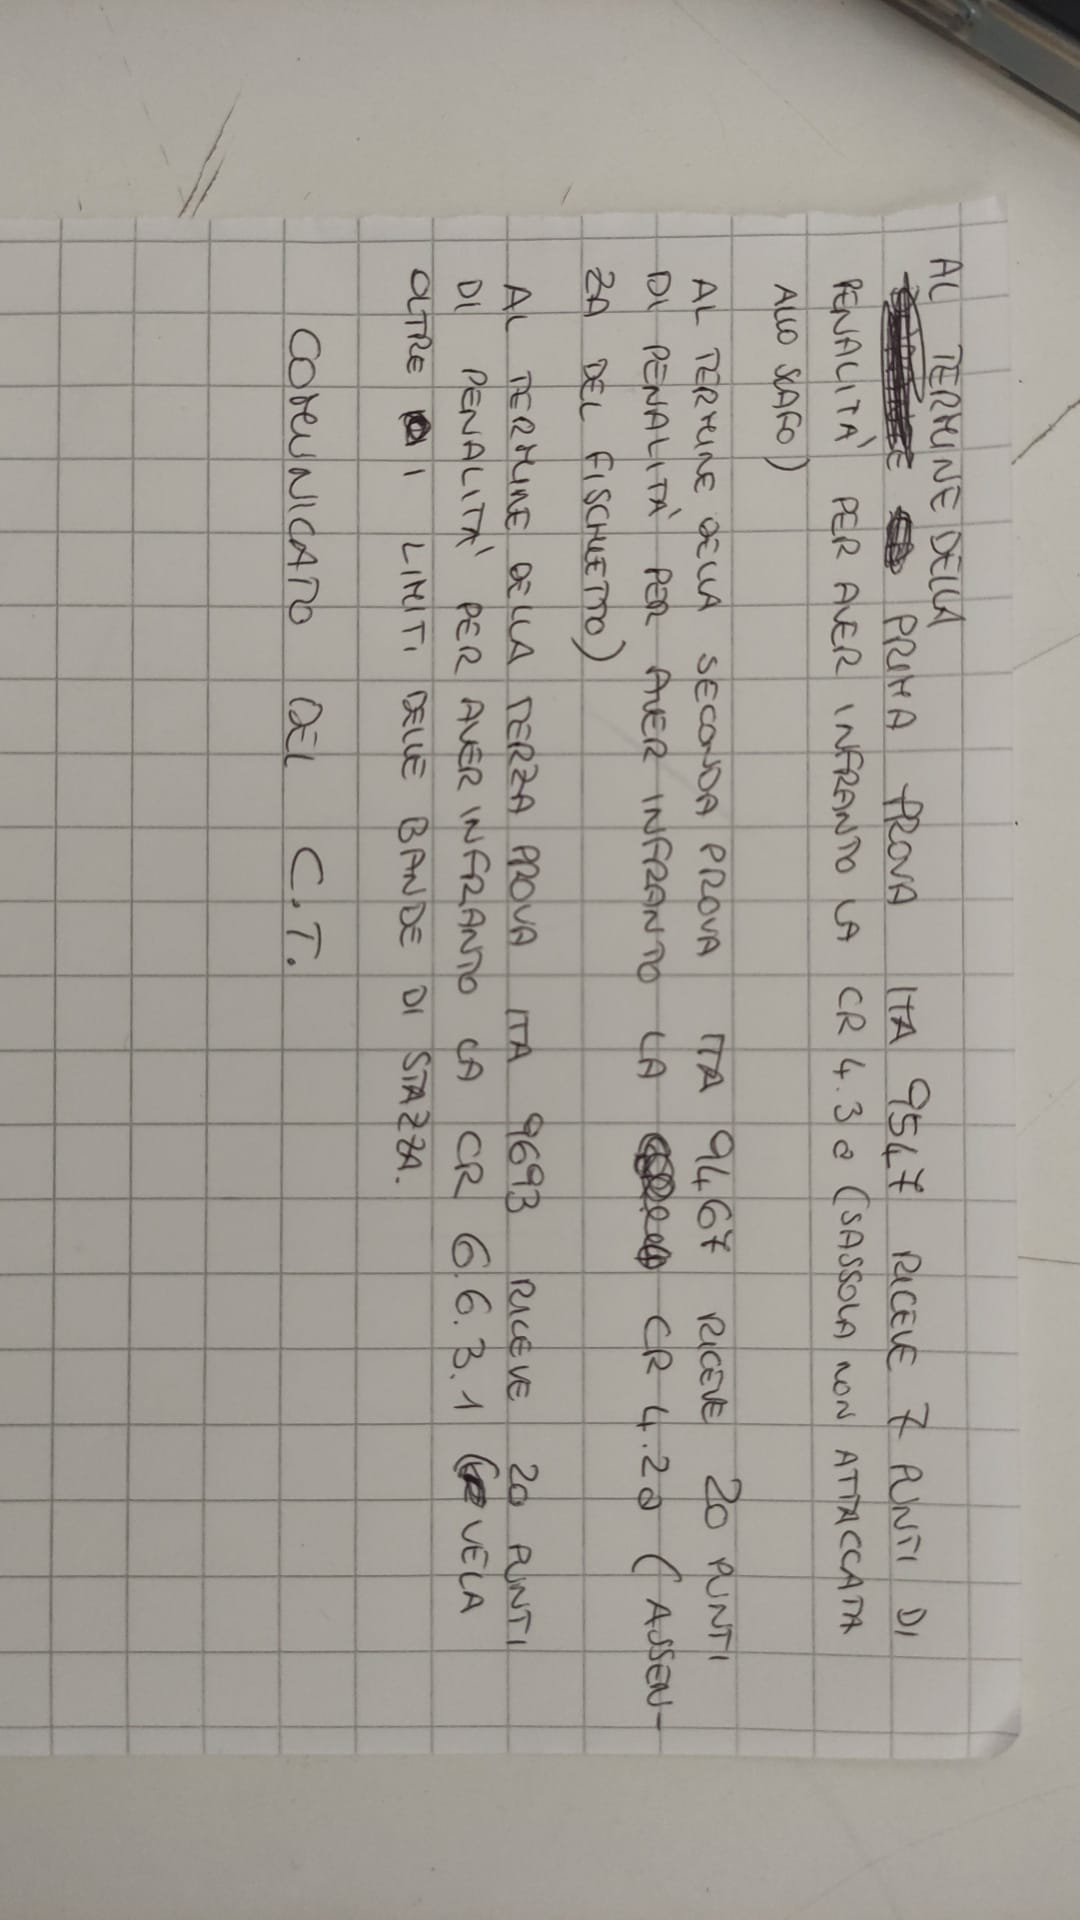 AL TERMINE DELLA
PRIMA PROVA ITA 9547 RICEVE 7 PUNTI DI
PENALITA' PER AVER INFRANTO LA CR 4.3 a (SASSOLA NON ATTACCATA
ALLO SCAFO)
AL TERMINE DELLA SECONDA PROVA ITA 9467 RICEVE 20 PUNTI
DI PENALITA' PER AVER INFRANTO LA CR 4.2 a (ASSEN-
ZA DEL FISCHIETTO)
AL TERMINE DELLA TERZA PROVA ITA 9693 RICEVE 20 PUNTI
DI PENALITA' PER AVER INFRANTO LA CR 6.6.3.1 (VELA
OLTRE I LIMITI DELLE BANDE DI STAZZA.
COMUNICATO DEL C.T.